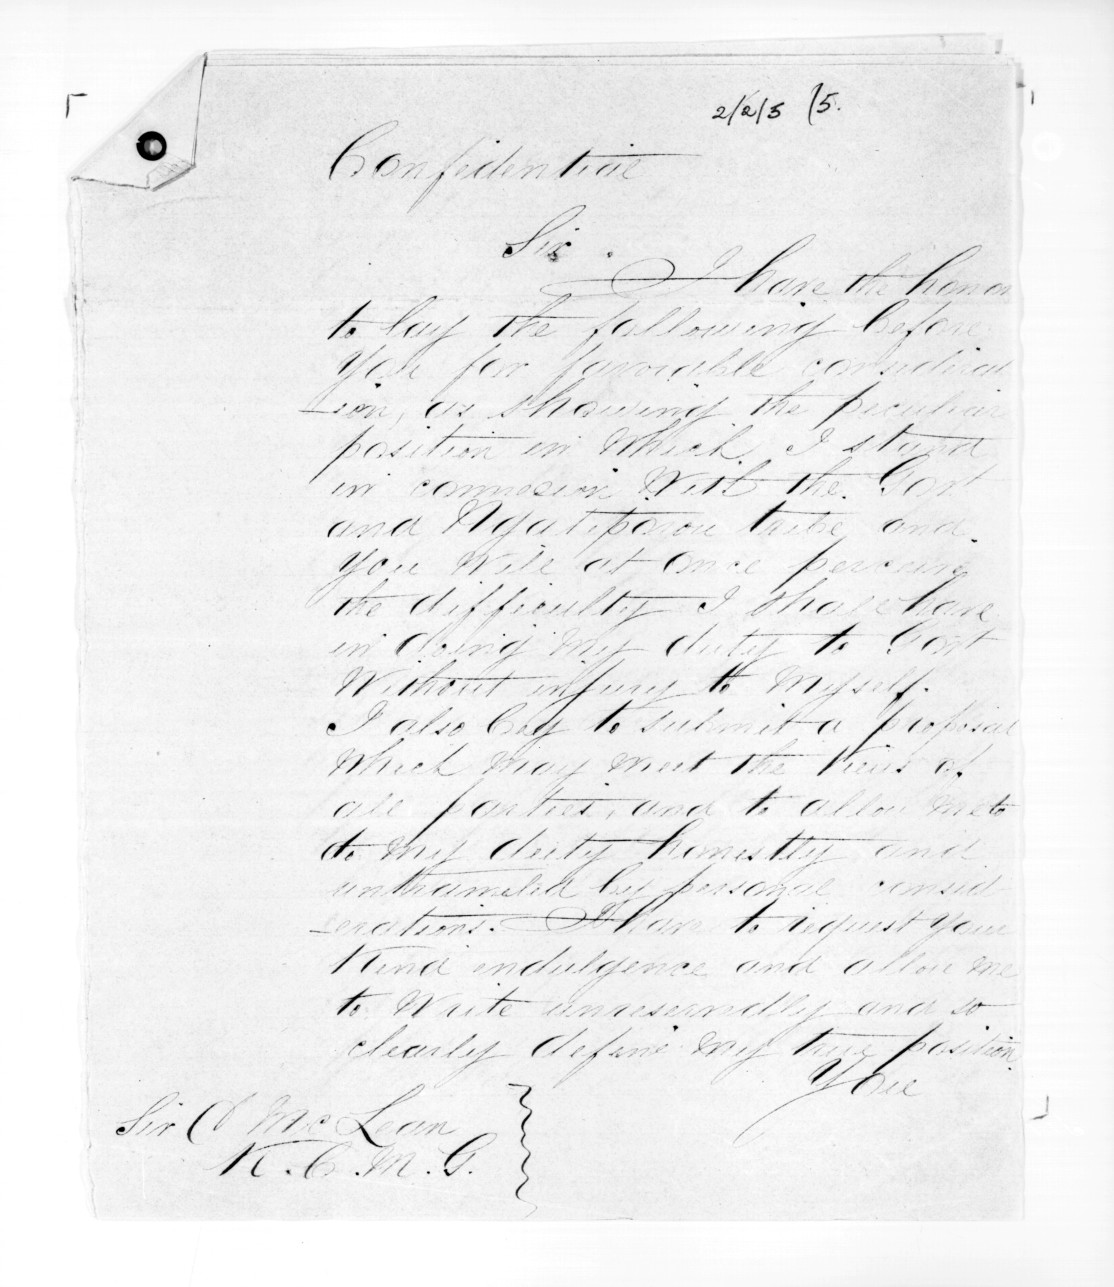 2/2/5 /5.
Confidential
Sir.
I have the honor
to lay the following before
You for favorable considerat
-ion, as showing the peculiar
position in Which I stand
in connexion With the Govt
and Ngatiporou tribe and
You Will at once perceive
the difficulty I shall have
in doing My duty to Govt
Without injury to Myself.
I also beg to submit a proposal
Which May meet the Views of
all parties, and to allow Me to
do My duty honestly and
unthameled by personal consid
-erations. I have to request Your
Kind indulgence and allow Me
to Write unreservedly and so
clearly define My true position.
You
Sir D McLean
K.C.M.G.